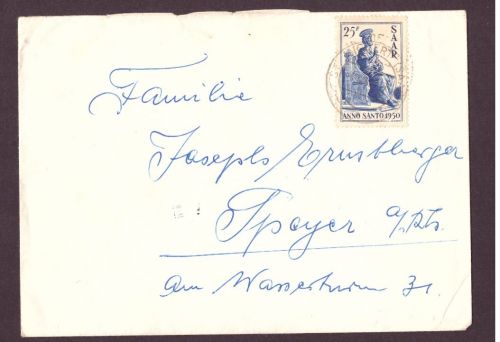 25F SAAR
ANNO SANTO 1950
Familie
Josephs Ernstberger
Speyer a/Rh.
Am Wasserturm 31